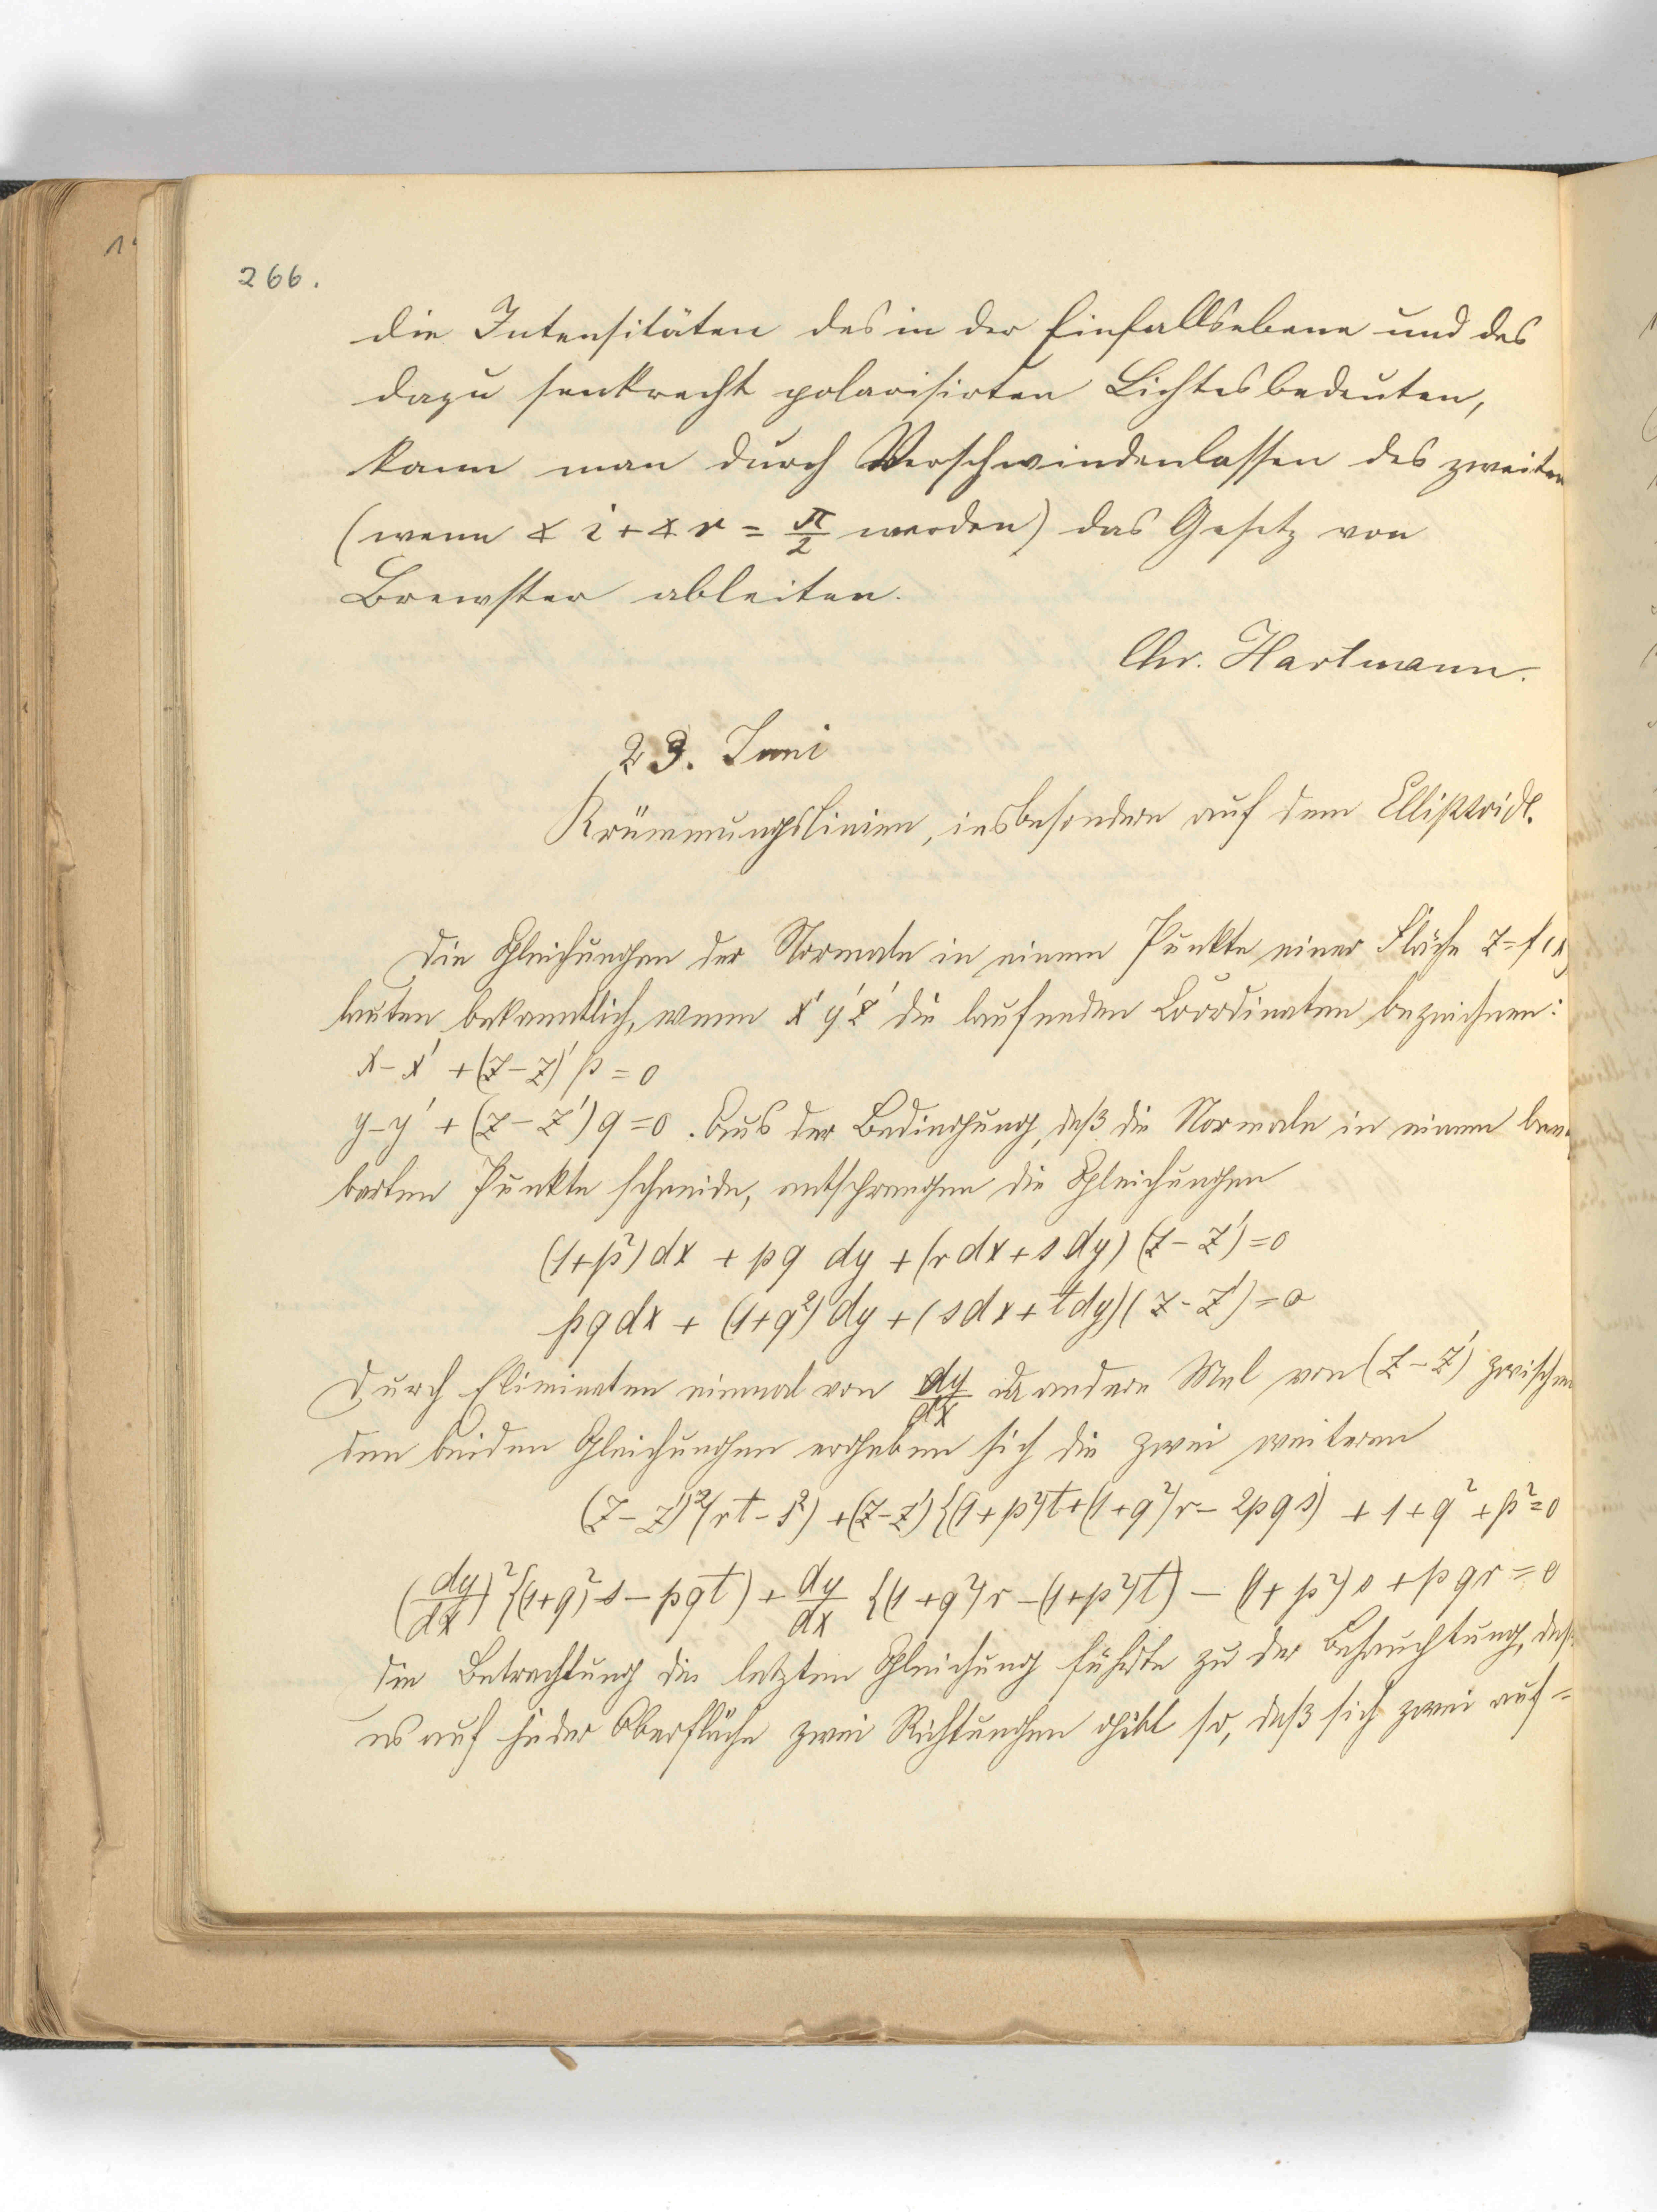 266.
die Intensitäten des in der Einfallsebene und des
dazu senkrecht polarisirten Lichtes bedeuten,
kann man durch Verschwindenlassen des zweiten
(wenn ∢ i + ∢ r = π/2 werden) das Gesetz von
Brewster ableiten.
Chr. Hartmann.
23. Juni
Krümmungslinien, insbesondere auf dem Ellipsoid.
Die Gleichungen der Normale in einem Punkte einer Fläche z = f(x
lauten bekanntlich, wenn x' y' z' die laufenden Coordinaten bezeichnen:
x - x' + (z - z)' p = 0
y - y' + (z - z') q = 0. Aus der Bedingung, daß die Normale in einem
barten Punkte schneide, entsprangen die Gleichungen
(1 + p²) dx + pq dy + (r dx + s dy) (z - z') = 0
pq dx + (1 + q²) dy + (s dx + t dy) (z - z') = 0
Durch Eliminaten einmal von dy/dx andere Mal von (z - z') zwischen
den beiden Gleichungen ergeben sich die zwei weiteren
(z - z')² (rt - s²) + (z - z') {(1 + p²)t + (1 + q²)r - 2pqs) + 1 + q² + p² = 0
(dy/dx)² {(1 + q²) s - pqt) + dy/dx {(1 + q²)r - (1 + p²)t) - (1 + p²)s + pqr = 0
Die Betrachtung der letzten Gleichung führte zu der
es auf jeder Oberfläche zwei Richtungen gibt so, daß sich zwei auf-